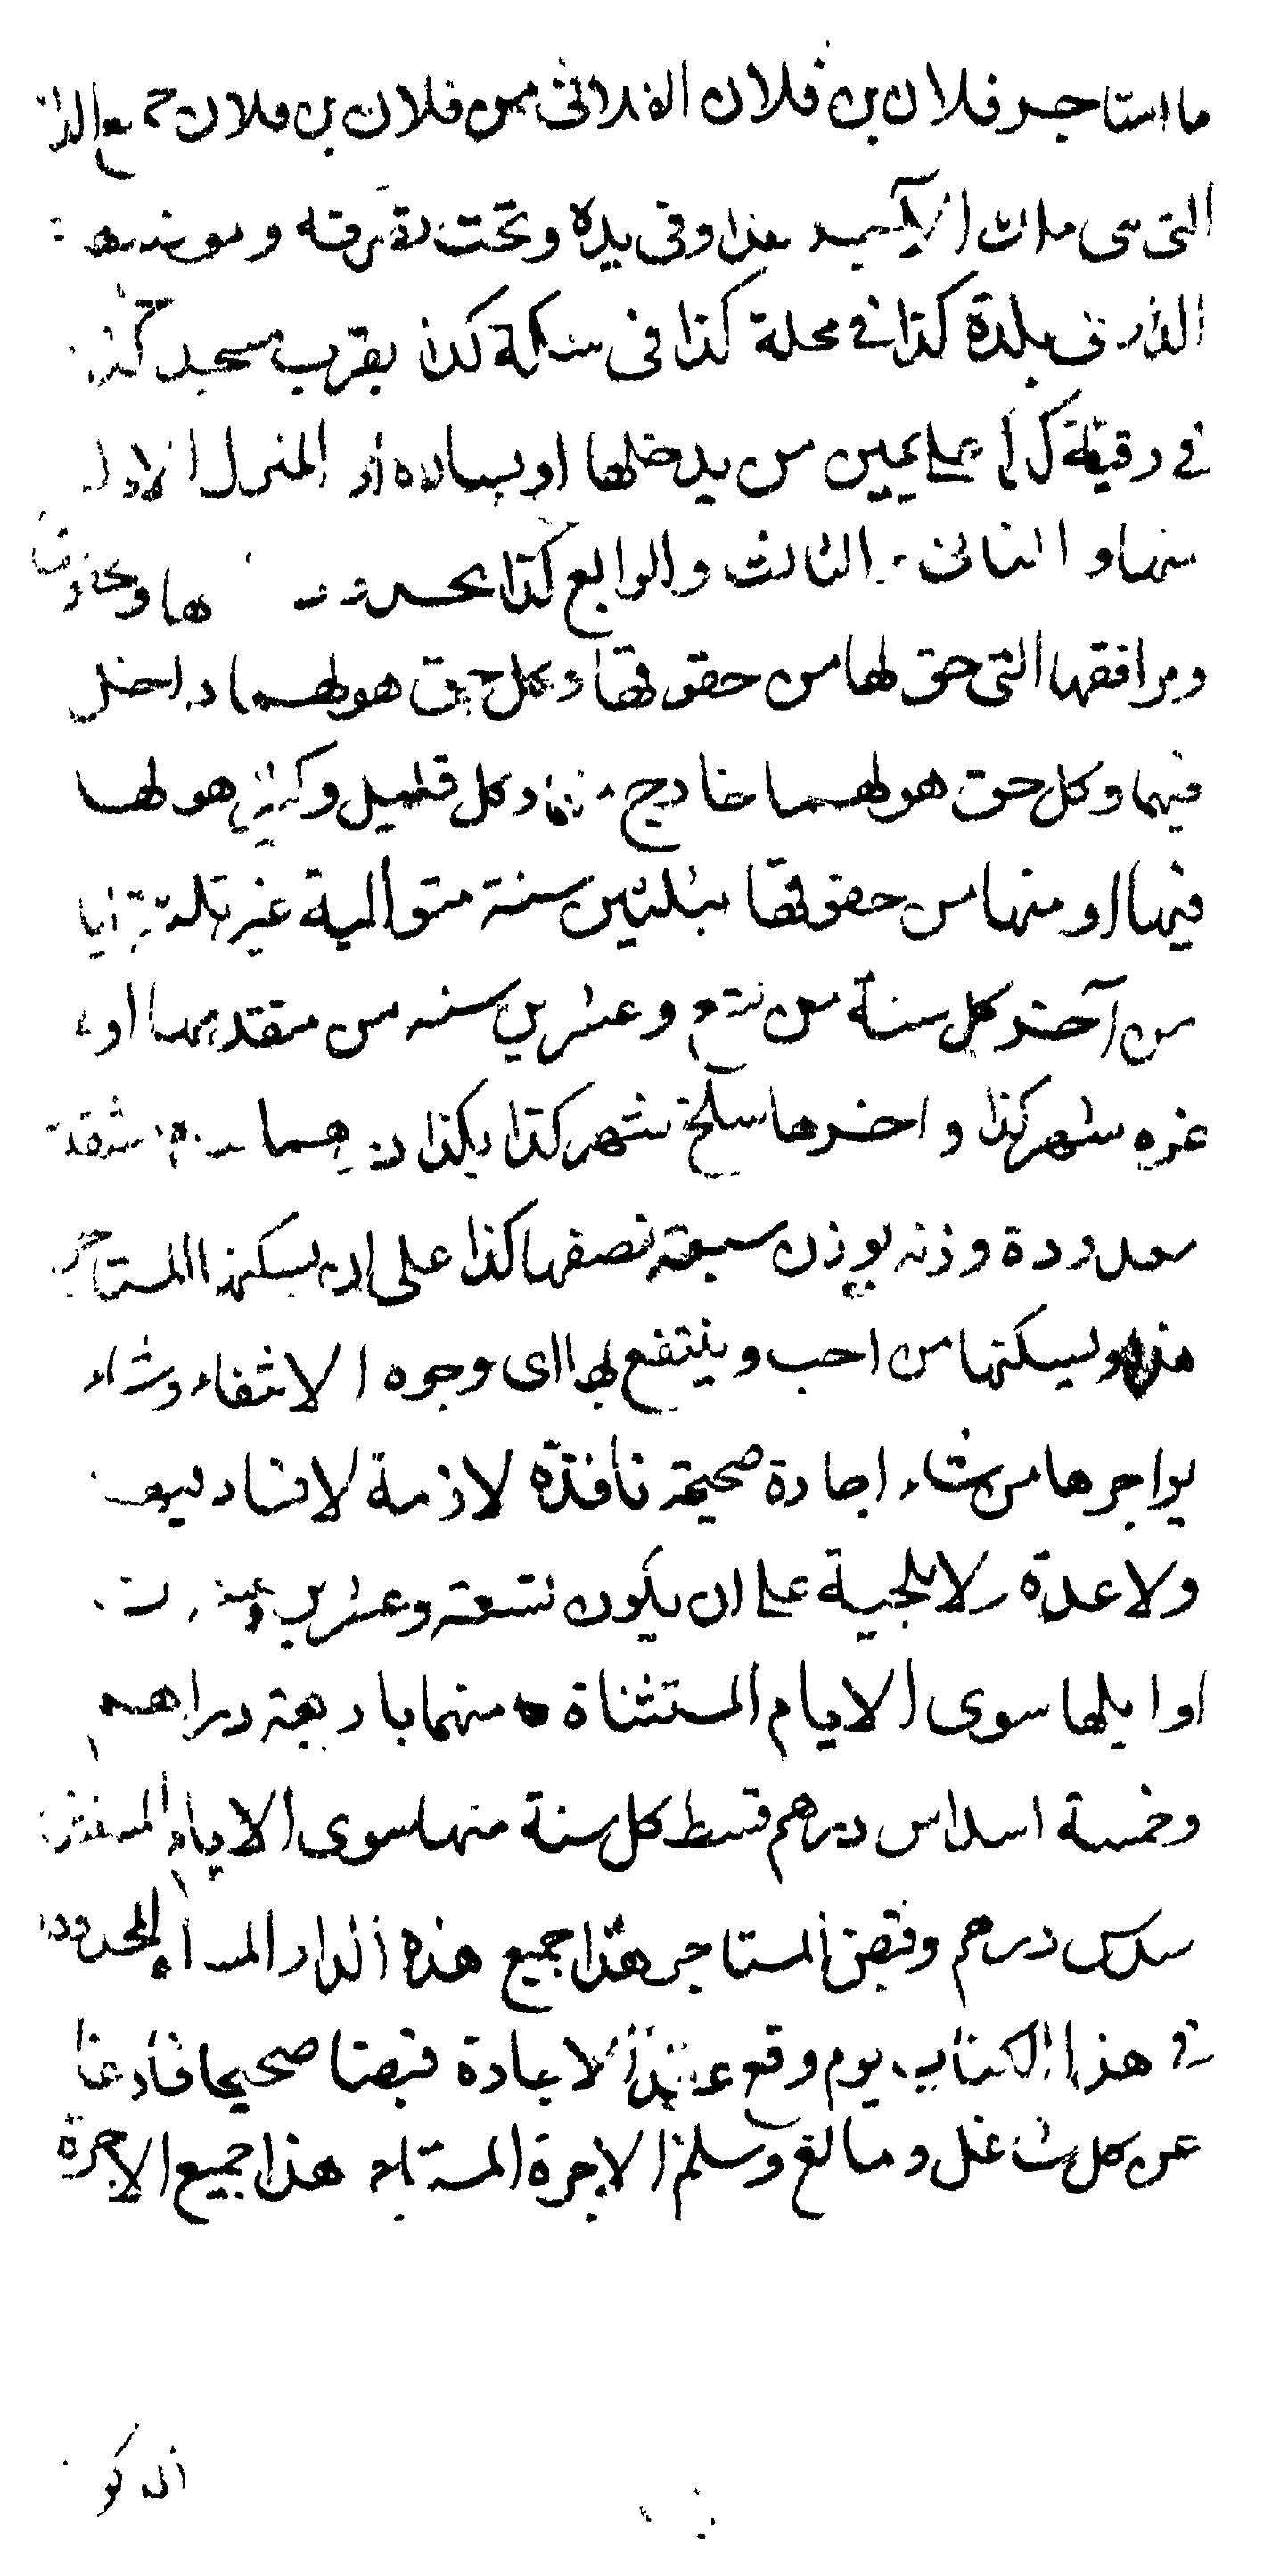 ما استاجر فلان بن فلان الفلانى من فلان بن فلان جميع الدار
التى هى ملك الآجر هذا وفى يده وتحت تصرفه
الدار فى بلدة كذا فى محلة كذا فى سكة كذا بقرب مسجد كذا
فى دقيقة كذا على يمين من يدخلها او يساره المنزل الاول
منها والثانى والثالث والرابع كذا
ومرافقها التى حق لها من حقوقها وكل حق هو لهما داخل
فيهما وكل حق هو لهما خارج منهما وكل قليل وكثير هو لها
فيها او منها من حقوقها بثلثين سنة متوالية غير ثلثة ايام
من آخر كل سنة من تسع وعشرين سنه من متقدمها اولها
غره شهر كذا واخرها سلخ شهر كذا بكذا درهما
معدودة وزنه بوزن سبعة نصفها كذا على ان يسكنها المستاجر
هذا ويسكنها من احب وينتفع بها اى وجوه الانتفاع وشاء
يواجرها من يشاء اجارة صحيحة نافذة لازمة لا فساد فيها
ولا عدة ولا تلجية على ان يكون تسعة وعشرين
اوايلها سوى الايام المستثناة منهما باربعة دراهم
وخمسة اسداس درهم قسط كل سنة منها سوى الايام
سدس درهم وقبض المستاجر هذا جميع هذه الدار المحدودة
فى هذا الكتاب يوم وقع عقد الاجارة قبضا صحيحا فارغا
عن كل شاغل ومانع وسلم الاجرة المستاجر هذا جميع الاجرة